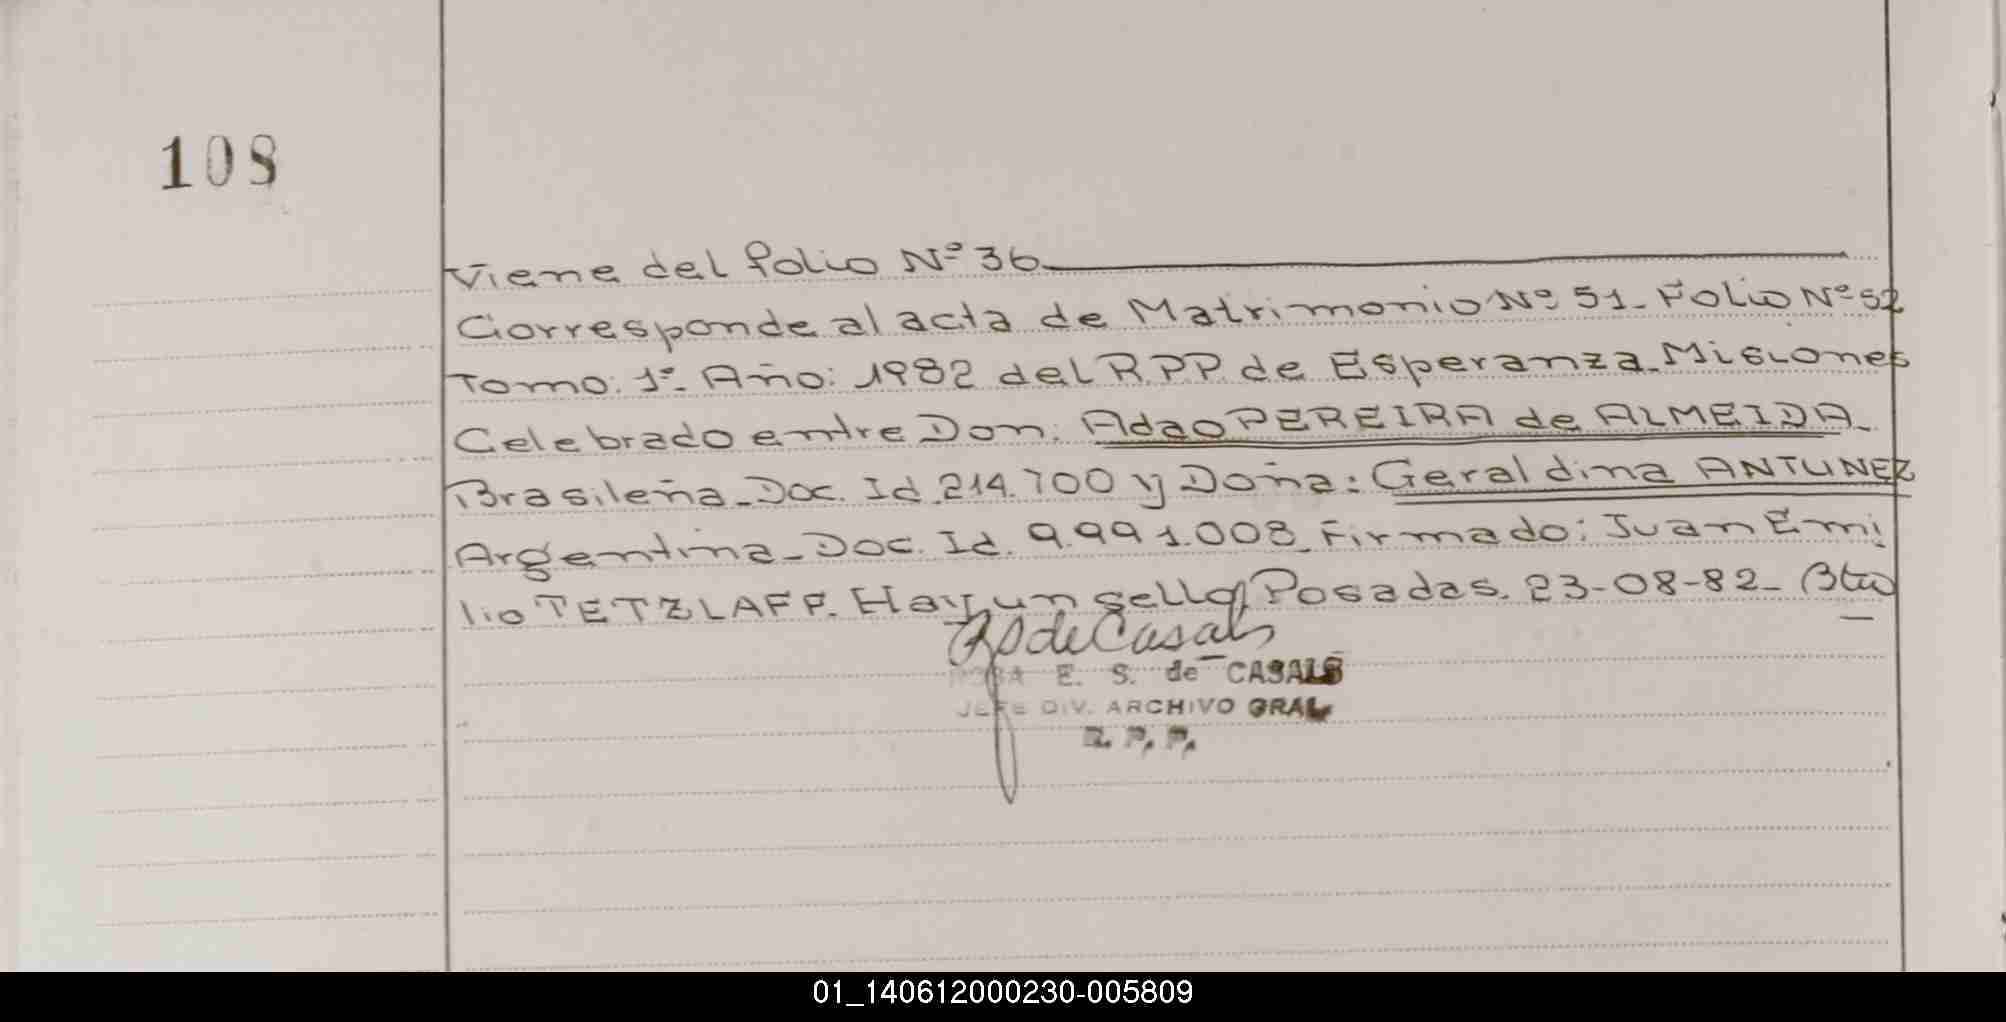 108
Viene del folio Nº 36
Corresponde al acta de Matrimonio Nº 51_ Folio Nº 52
Tomo: 1º. Año: 1982 del R.P.P. de Esperanza_Misiones
Celebrado entre Don: Adao PEREIRA de ALMEIDA_
Brasileña_Doc. Id. 214.700 y Doña: Geraldina ANTUNEZ
Argentina_Doc. Id. 9.991.008_Firmado: Juan Emi
lio TETZLAFF. Hay un sello/ Posadas. 23-08-82_
RSdeCasals
E. S. de CASALS
JEFE DIV. ARCHIVO GRAL
R. P. P.
01_140612000230-005809